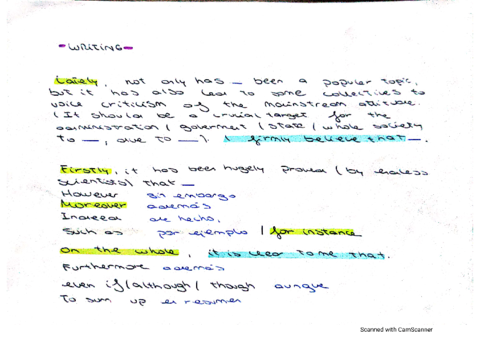 - WRITING -
Lately, not only has _ been a popular topic,
but it has also lead to some collectives to
voice criticism of the mainstream attitude.
(It should be a crucial target for the
administration / goverment / state / whole society
to _, due to _). I firmly believe that _.
Firstly, it has been hugely proved (by endless
scientists) that _
However sin embargo
Moreover además
Indeed de hecho,
Such as por ejemplo / for instance
On the whole, it is clear to me that.
Furthermore además
even if / although / though aunque
To sum up en resumen
Scanned with CamScanner